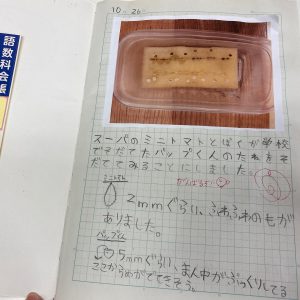 語数科会帳
10 26
スーパのミニトマトとぼくが学校
でそだてたパップくんのたねをそ
だててみることにしました。
ミニトマト
2mmぐらい、ふわふわのもが
ありました。
パップくん
5mmぐらい、まん中がぷっくりしてる
ここからめがでてきそう。